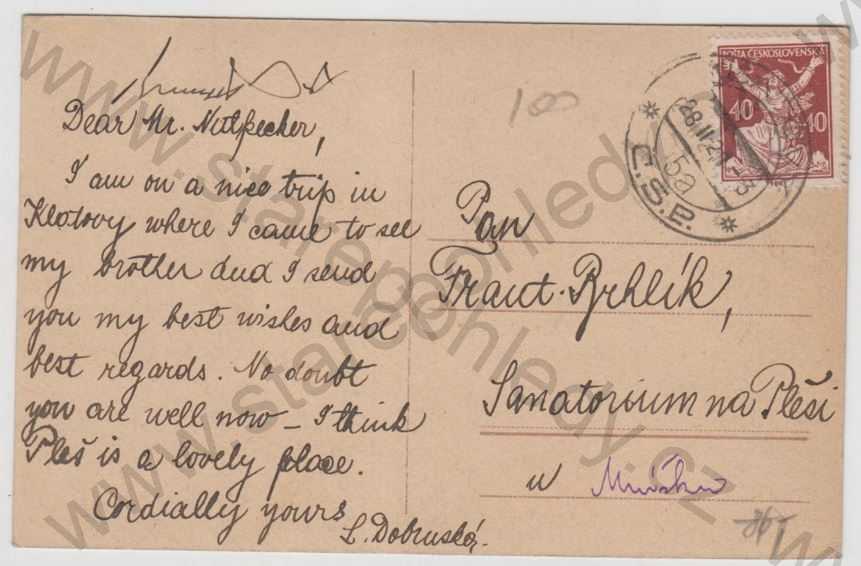 Dear Mr. Nutpecker,
I am on a nice trip in
Klatovy where I came to see
my brother and I send
you my best wishes and
best regards. No doubt
you are well now – I think
Pleš is a lovely place.
Cordially yours
L. Dobruská.
100
POŠTA ČESKOSLOVENSKÁ
40 40
28.II.2
5a
Č.S.P.
Pan
Frant. Prhlík,
Sanatorium na Pleši
u
www.starepohledy.cz